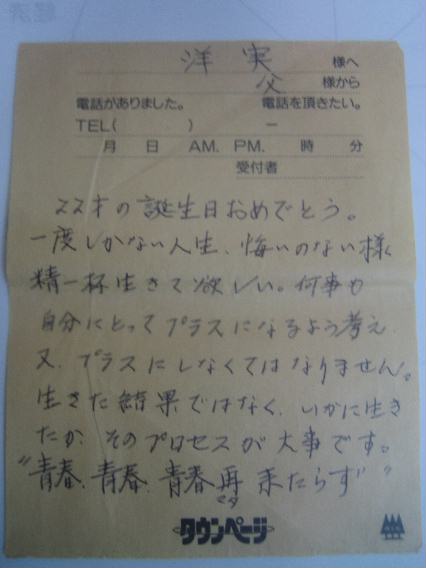 洋実 様へ
父 様から
電話がありました。 電話を頂きたい。
TEL( ) ー
月 日 AM. PM. 時 分
受付者
22才の誕生日おめでとう。
一度しかない人生、悔いのない様、
精一杯生きて欲しい。何事も
自分にとってプラスになるよう考え、
又、プラスにしなくてはなりません。
生きた結果ではなく、いかに生き
たか、そのプロセスが大事です。
"青春、青春、青春再来たらず"
マタ
タウンページ